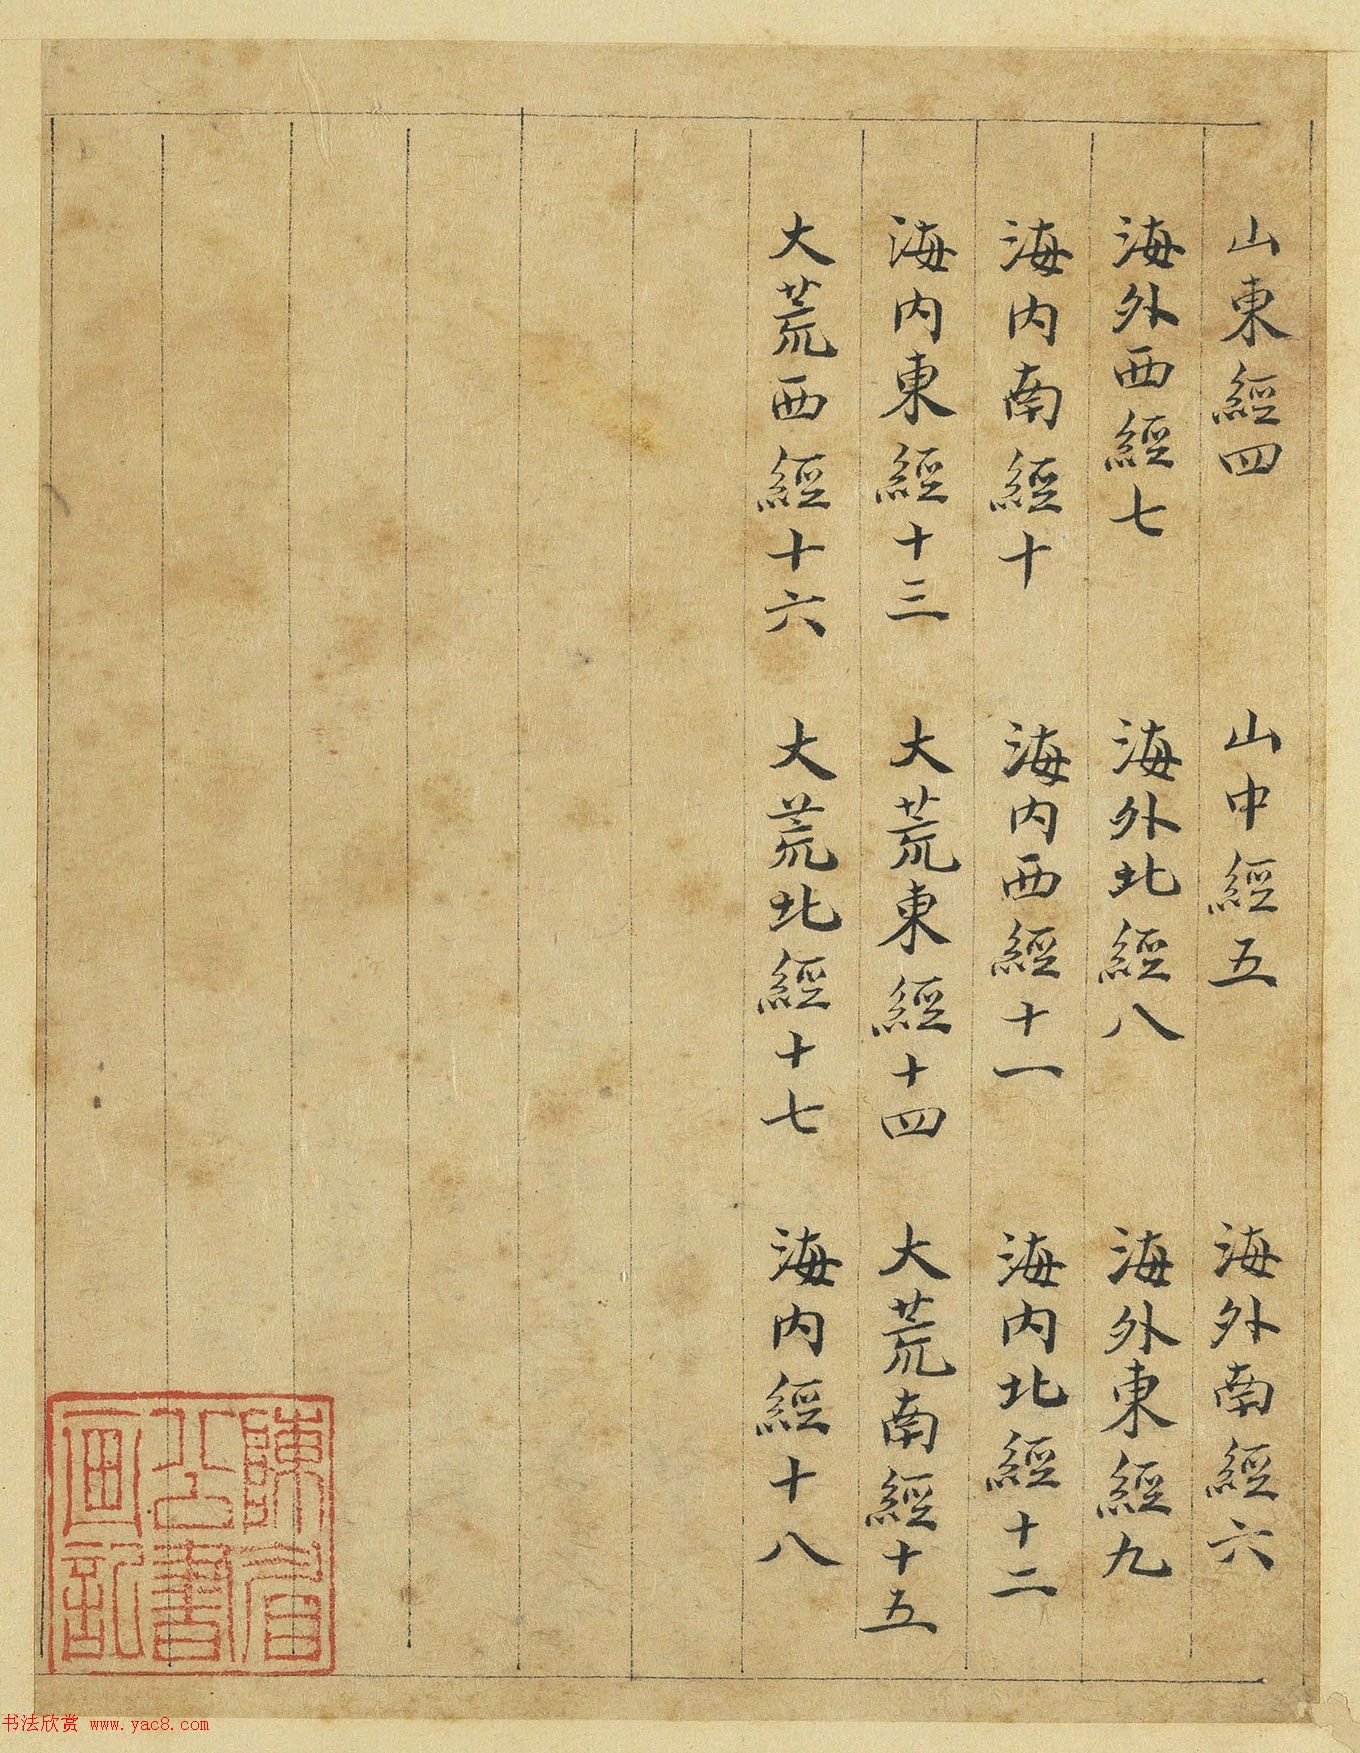 山東經四 山中經五 海外南經六
海外西經七 海外北經八 海外東經九
海內南經十 海內西經十一 海內北經十二
海內東經十三 大荒東經十四 大荒南經十五
大荒西經十六 大荒北經十七 海內經十八
陳眉
公書
畫記
书法欣赏 www.yac8.com